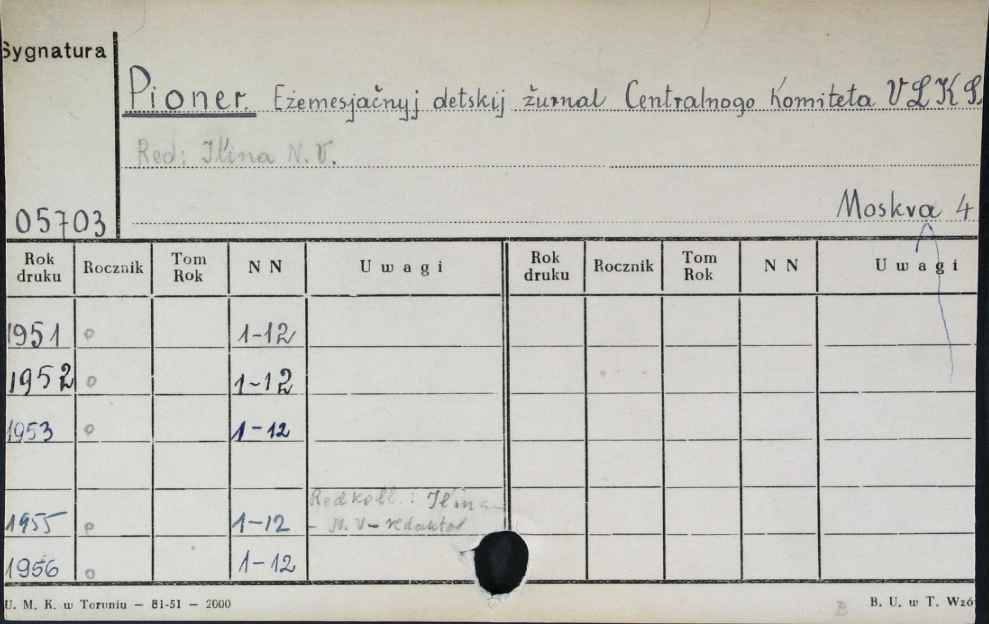 Sygnatura
Pioner. Eżemesjačnyj detskij žurnal Centralnogo Komiteta VLKS
Red: Il'ina N. V.
05703
Moskva 4
Rok druku Rocznik Tom Rok N N Uwagi Rok druku Rocznik Tom Rok N N Uwagi
1951 o 1-12
1952 o 1-12
1953 o 1-12
Redkoll.: Il'ina
1955 o 1-12 - N. V - redaktor
1956 o 1-12
U. M. K. w Toruniu — 81-51 — 2000
B B. U. w T. Wzó